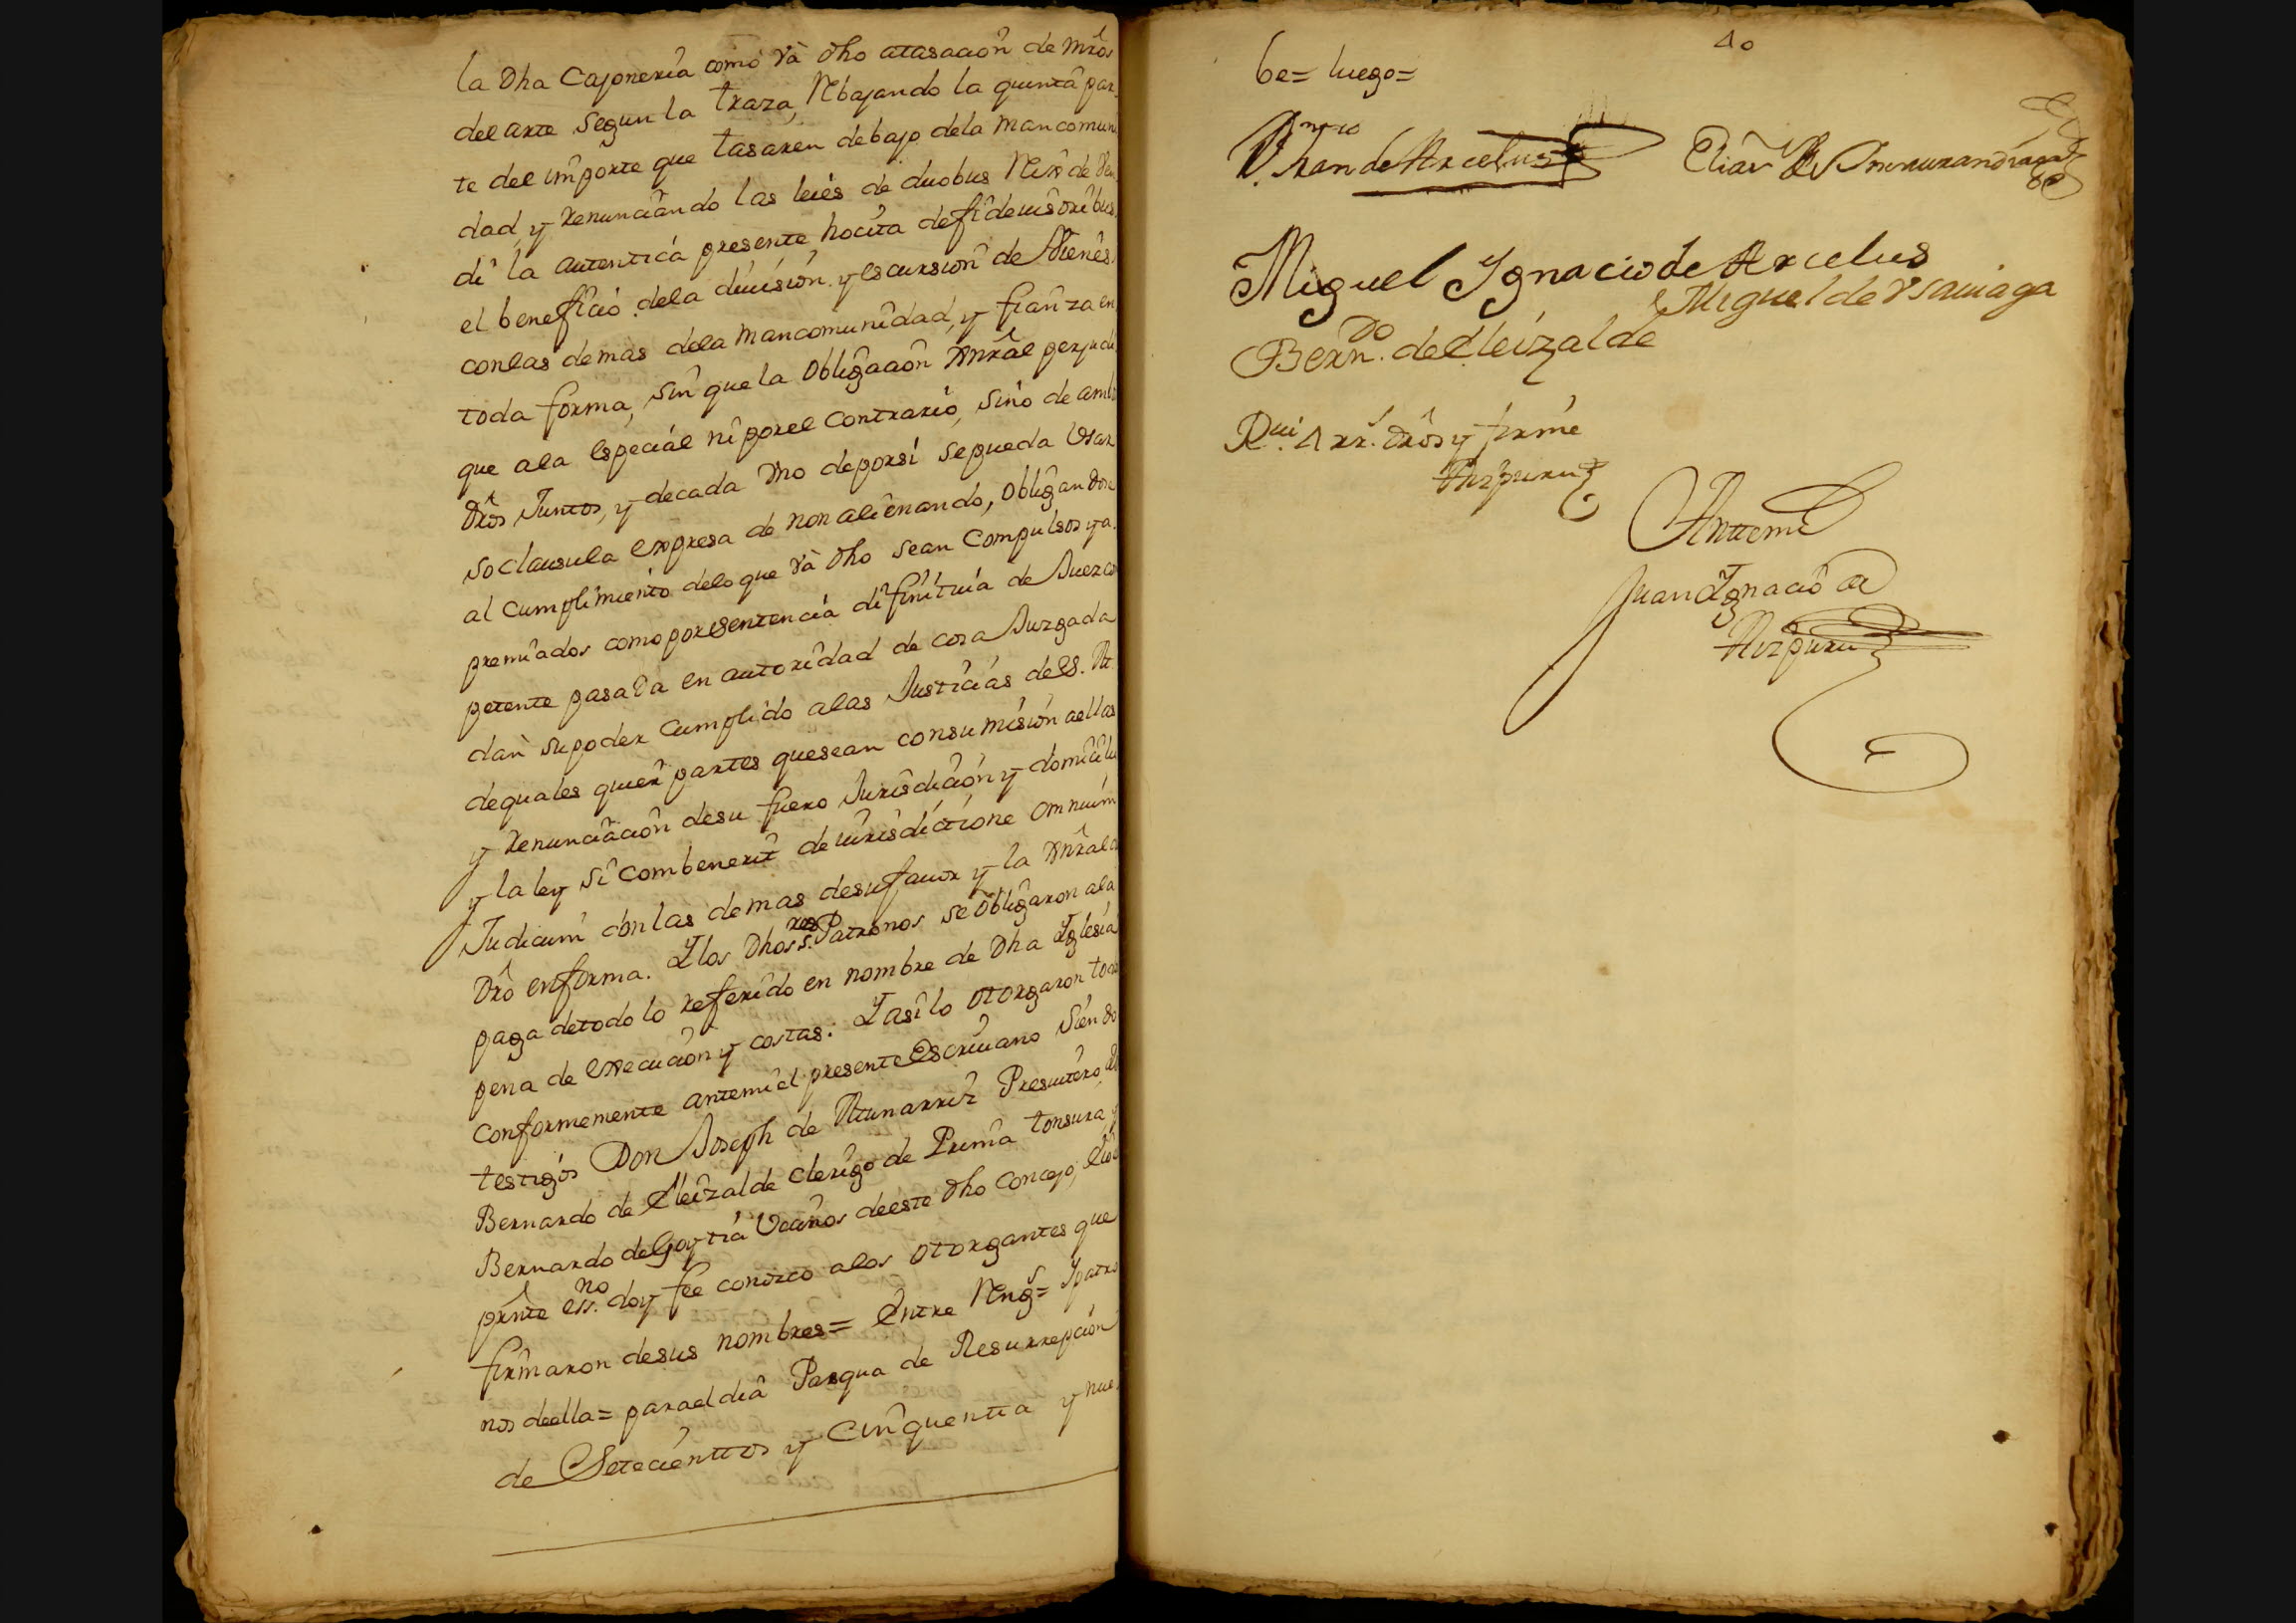 la Dha Cajoneria como va dho atasacion de mrõs
del arte segun la traza, Rebajando la quinta par
te del importe que tasaren debajo dela mancomuni
dad, y renunciando las leies de duobus Reis de
di la autentica presente hocita de fideiusoribus
el beneficio dela division y escursion de Vienes
conlas demas dela mancomunidad, y fianza en
toda forma, sin que la obligacion Gnrâl perjudi
que ala especial ni porel contrario, sino de ambo
drõs Juntos, y decada Vno deporsi sepueda Vsar
so clausula expresa de non alienando, obligandose
al cumplimiento delo que va dho sean compulsos y a
premiados como porsentencia difinitiva de Juez com
petente pasada en autoridad de cosa Juzgada
dan supoder cumplido alas Justicias de S. M.
dequales quier partes quesean consumision aellas
y renunciacion desu fuero Jurisdicion y domicilio
y la ley si combenerit de iurisdictione omnium
Judicum conlas demas desufavor y la Gnrâl
drõ enforma. Ylos dhos s.res Patronos se obligaron ala
paga detodo lo referido en nombre de Dha Yglesia
pena de execucion y costas: Yasilo otorgaron todos
conformemente antemi el presente Escrivano siendo
testigos Don Joseph de Atunarriz Presvitero,
Bernardo de Eleizalde clerigo de Prima tonsura, y
Bernardo de Goytia Vecinos deeste dho Concejo,
prnte ess.no doy fee conozco alos otorgantes que
firmaron desus nombres= Entre Reng.s= Ypatro
nos deella= parael dia Pasqua de Resurrepcion
de Setecienttos y cinquentta y nue
40
be= luego=
Miguel Ygnacio de Arcelus
Miguel de Vsauiaga
Bern.do de Eleizalde
R.ui Arr. drõs y firme
Aizpuru
Anttemi
Juan Ygnacio de
Aizpuru